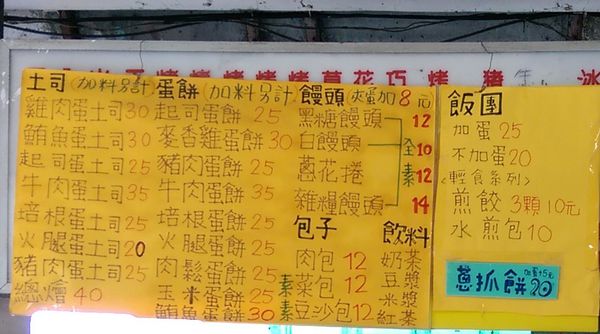 烤 烤 烤 蔥 花 巧 烤 豬 冰
土司(加料另計)
雞肉蛋土司30
鮪魚蛋土司30
起司蛋土司25
牛肉蛋土司35
培根蛋土司25
火腿蛋土司20
豬肉蛋土司25
總燴40
蛋餅(加料另計)
起司蛋餅25
麥香雞蛋餅30
豬肉蛋餅25
牛肉蛋餅35
培根蛋餅25
火腿蛋餅25
肉鬆蛋餅25
玉米蛋餅25
鮪魚蛋餅30
饅頭(夾蛋加8元
黑糖饅頭 12
白饅頭 10
蔥花捲 12
雜糧饅頭 14
全素
包子
肉包12
素菜包12
素豆沙包12
飲料
奶茶
豆漿
米漿
紅茶
飯團
加蛋25
不加蛋20
<輕食系列>
煎餃3顆10元
水煎包10
蔥抓餅 加蛋+5元 20